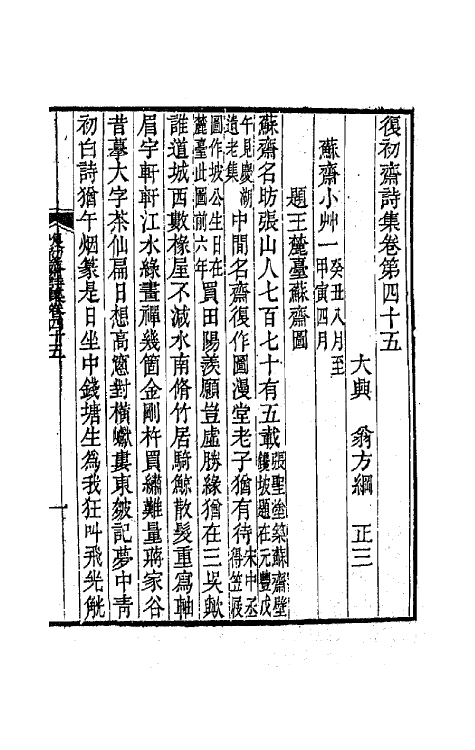 復初齋詩集卷第四十五
大興　翁方綱　正三
蘇齋小艸一癸丑八月至甲寅四月
題王麓臺蘇齋圖
蘇齋名昉張山人七百七十有五載張聖塗築蘇齋壁鐫坡題在元豐戊
午見慶湖遺老集中閒名齋復作圖漫堂老子猶有待宋中丞得笠屐
圖作坡公生日在麓臺此圖前六年買田陽羨願豈虛勝緣猶在三吳歟
誰道城西數椽屋不減水南脩竹居騎鯨散髮重寫軸
眉宇軒軒江水綠畫禪幾箇金剛杵買繡難量蔣家谷
昔摹大字茶仙扁日想高窻對橫巘婁東皴記夢中靑
初白詩猶午烟篆是日坐中錢塘生為我狂叫飛光觥
復初齋詩集卷四十五
一